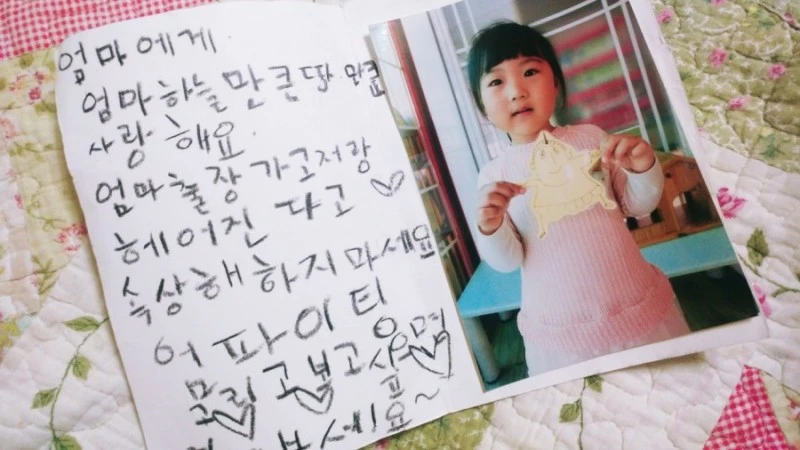 엄마에게
엄마하늘만큰땅만큼
사랑해요.
엄마출장가고저랑
헤어진다고
속상해하지마세요
어파이팅
그림고보고싶으면
보세요~